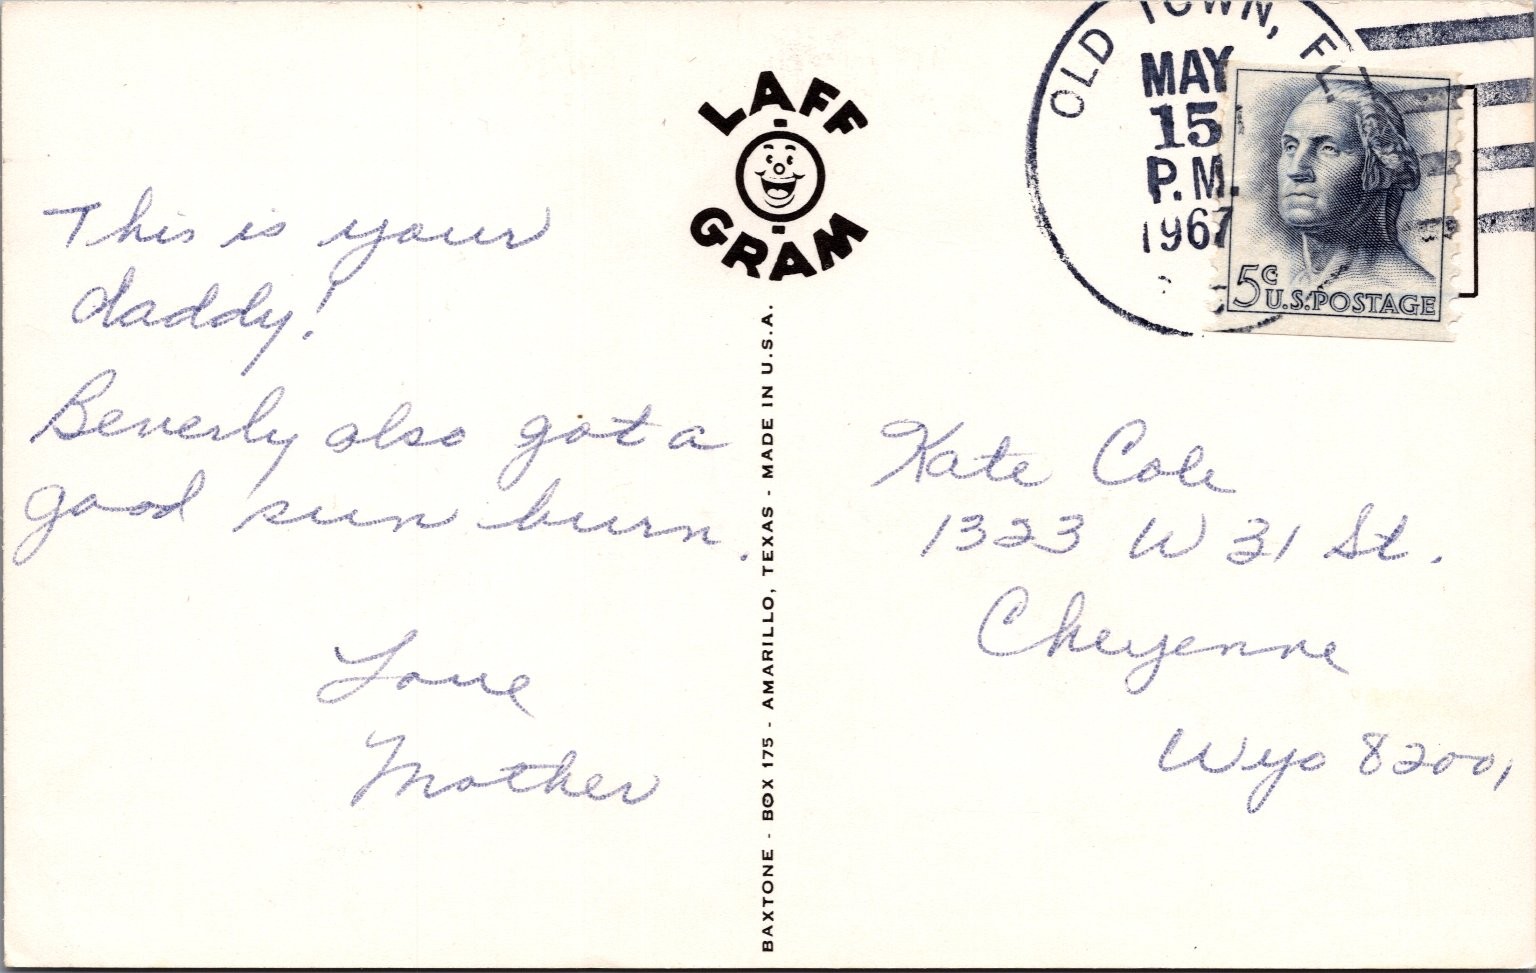 This is your
daddy!
Beverly also got a
good sun burn.
Love
Mother
LAFF
GRAM
BAXTONE - BOX 175 - AMARILLO, TEXAS - MADE IN U.S.A.
OLD TOWN, FL.
MAY
15
P.M.
1967
5c
U.S. POSTAGE
Kate Cole
1323 W 31 St.
Cheyenne
Wyo 82001